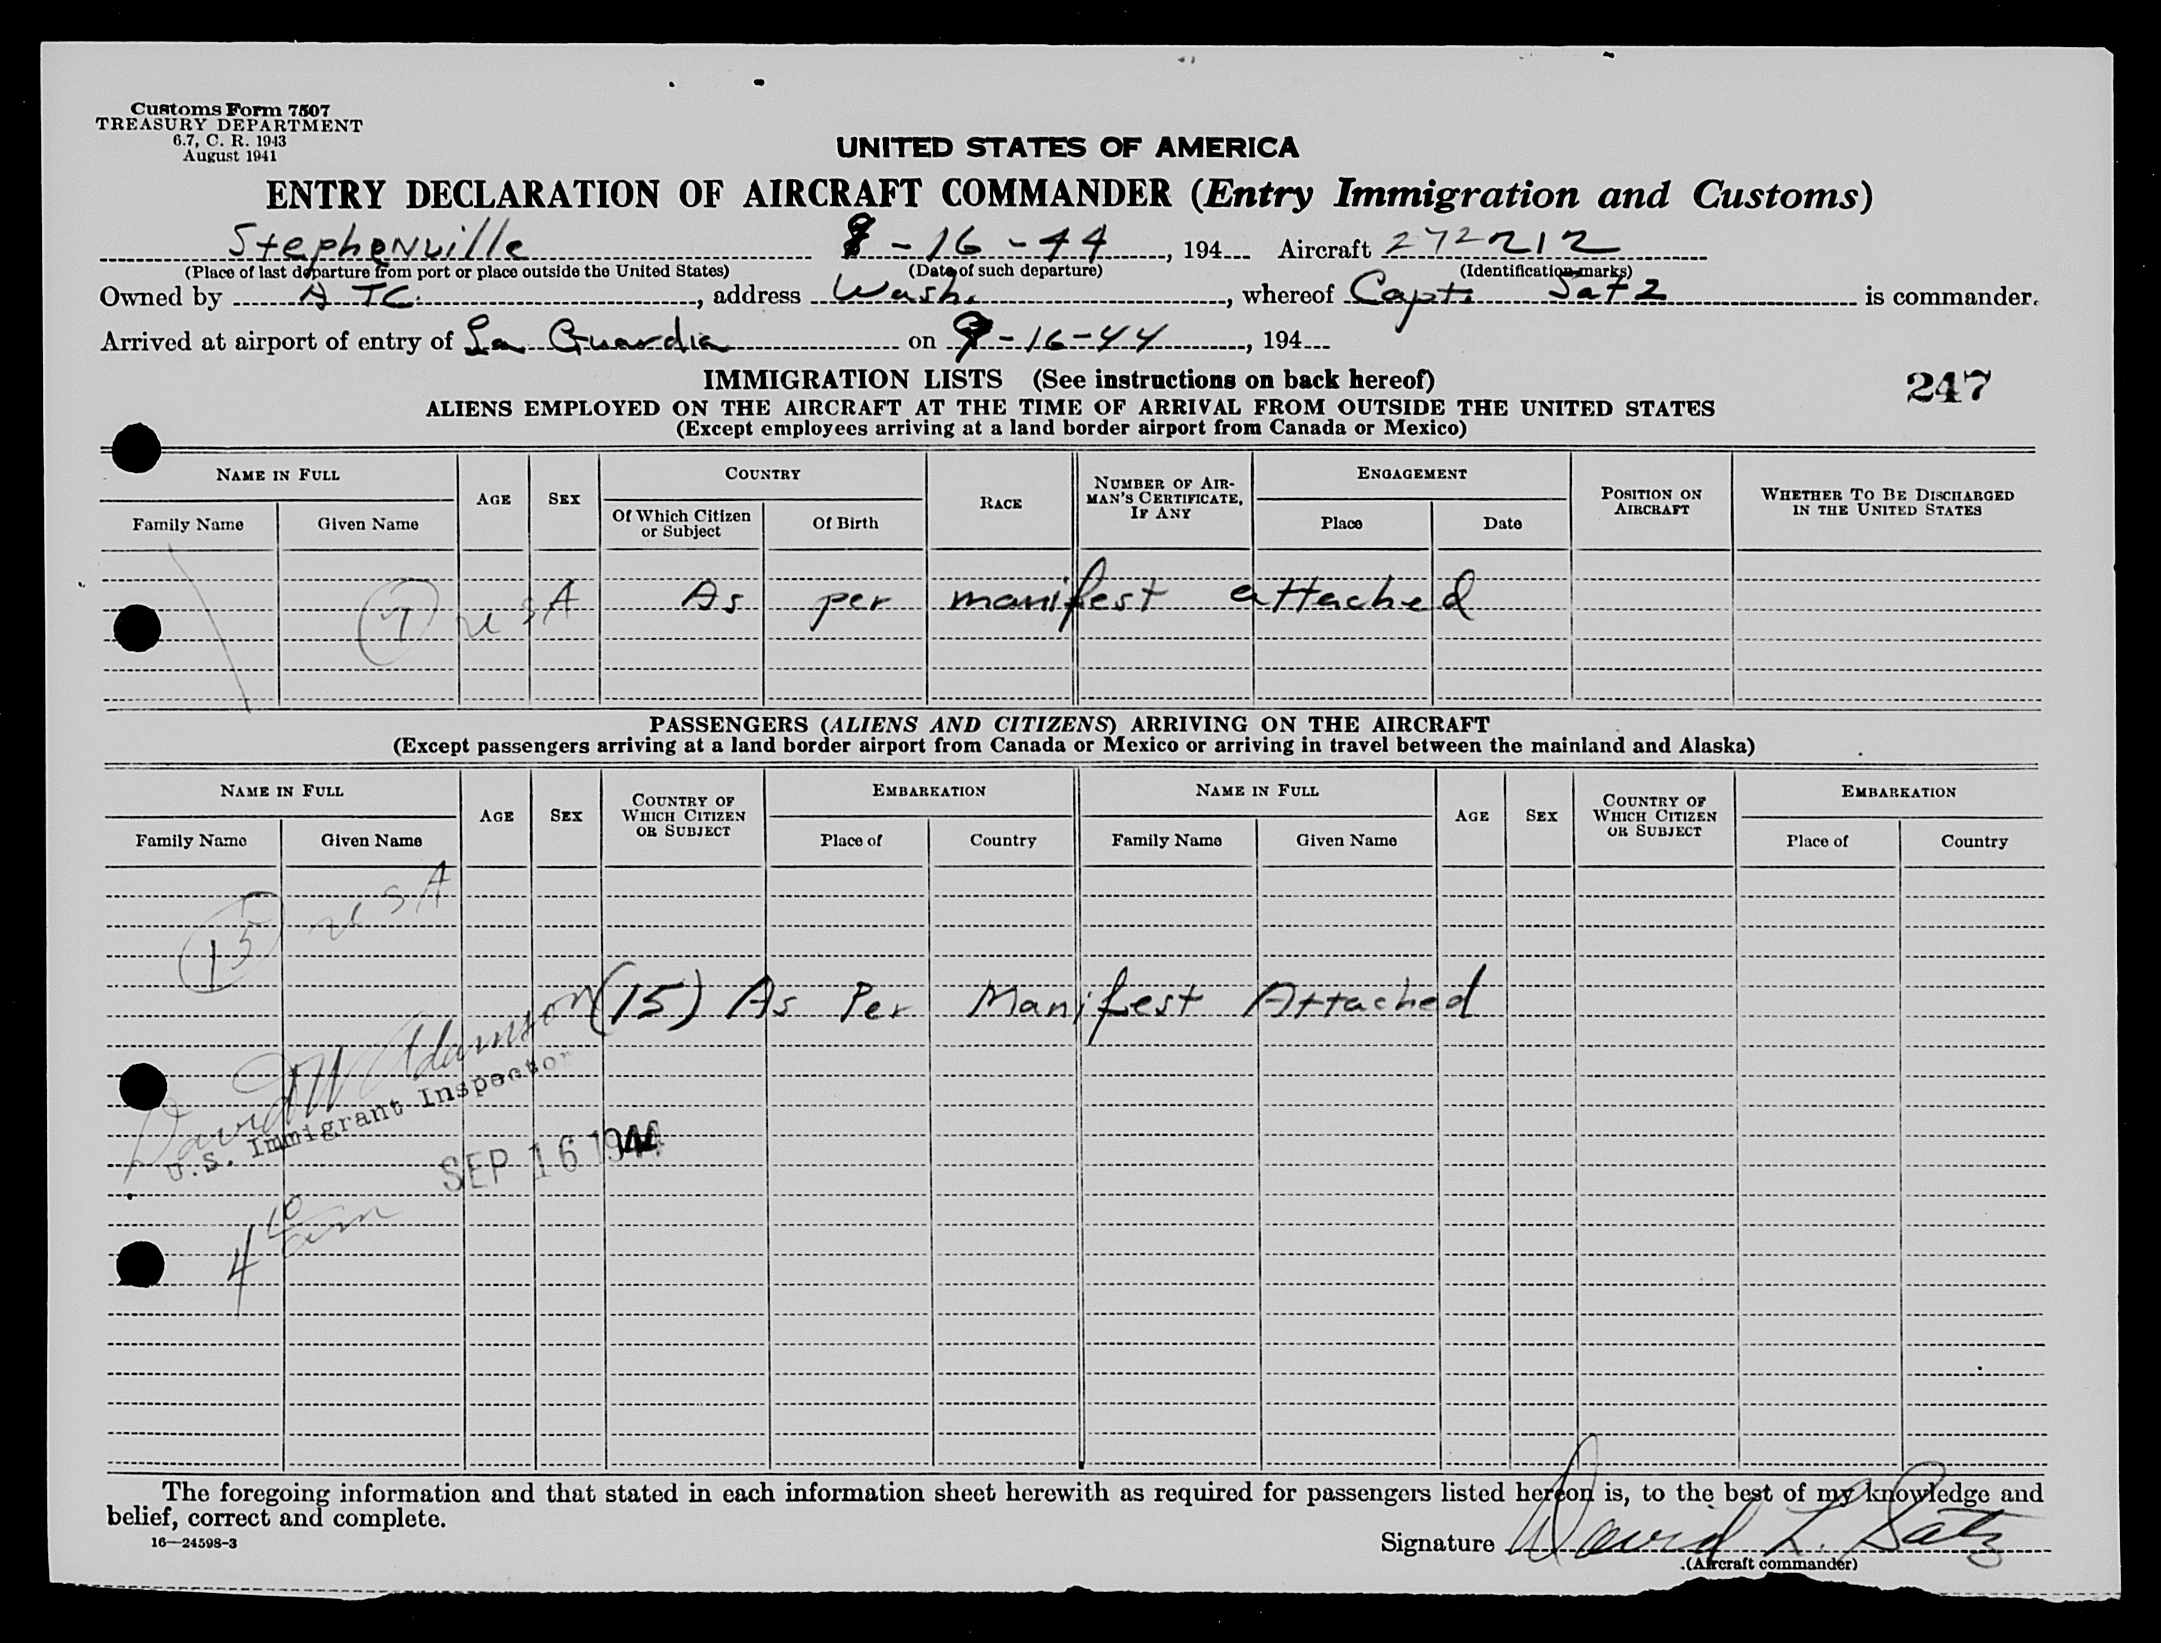 Customs Form 7507
TREASURY DEPARTMENT
6.7, C. R. 1943
August 1941
UNITED STATES OF AMERICA
ENTRY DECLARATION OF AIRCRAFT COMMANDER (Entry Immigration and Customs)
Stephenville 9-16-44, 194 Aircraft 272212
(Place of last departure from port or place outside the United States) (Date of such departure) (Identification marks)
Owned by ATC, address Wash., whereof Capt. Satz is commander.
Arrived at airport of entry of La Guardia on 9-16-44, 194
IMMIGRATION LISTS (See instructions on back hereof)
247
ALIENS EMPLOYED ON THE AIRCRAFT AT THE TIME OF ARRIVAL FROM OUTSIDE THE UNITED STATES
(Except employees arriving at a land border airport from Canada or Mexico)
NAME IN FULL AGE SEX COUNTRY RACE NUMBER OF AIRMAN'S CERTIFICATE, IF ANY ENGAGEMENT POSITION ON AIRCRAFT WHETHER TO BE DISCHARGED IN THE UNITED STATES
Family Name Given Name Of Which Citizen or Subject Of Birth Place Date
7 USA As per manifest attached
PASSENGERS (ALIENS AND CITIZENS) ARRIVING ON THE AIRCRAFT
(Except passengers arriving at a land border airport from Canada or Mexico or arriving in travel between the mainland and Alaska)
NAME IN FULL AGE SEX COUNTRY OF WHICH CITIZEN OR SUBJECT EMBARKATION NAME IN FULL AGE SEX COUNTRY OF WHICH CITIZEN OR SUBJECT EMBARKATION
Family Name Given Name Place of Country Family Name Given Name Place of Country
15 USA
(15) As Per Manifest Attached
David W Adamson
U.S. Immigrant Inspector
SEP 16 1944
The foregoing information and that stated in each information sheet herewith as required for passengers listed hereon is, to the best of my knowledge and
belief, correct and complete.
16—24598-3
Signature David L. Satz
(Aircraft commander)